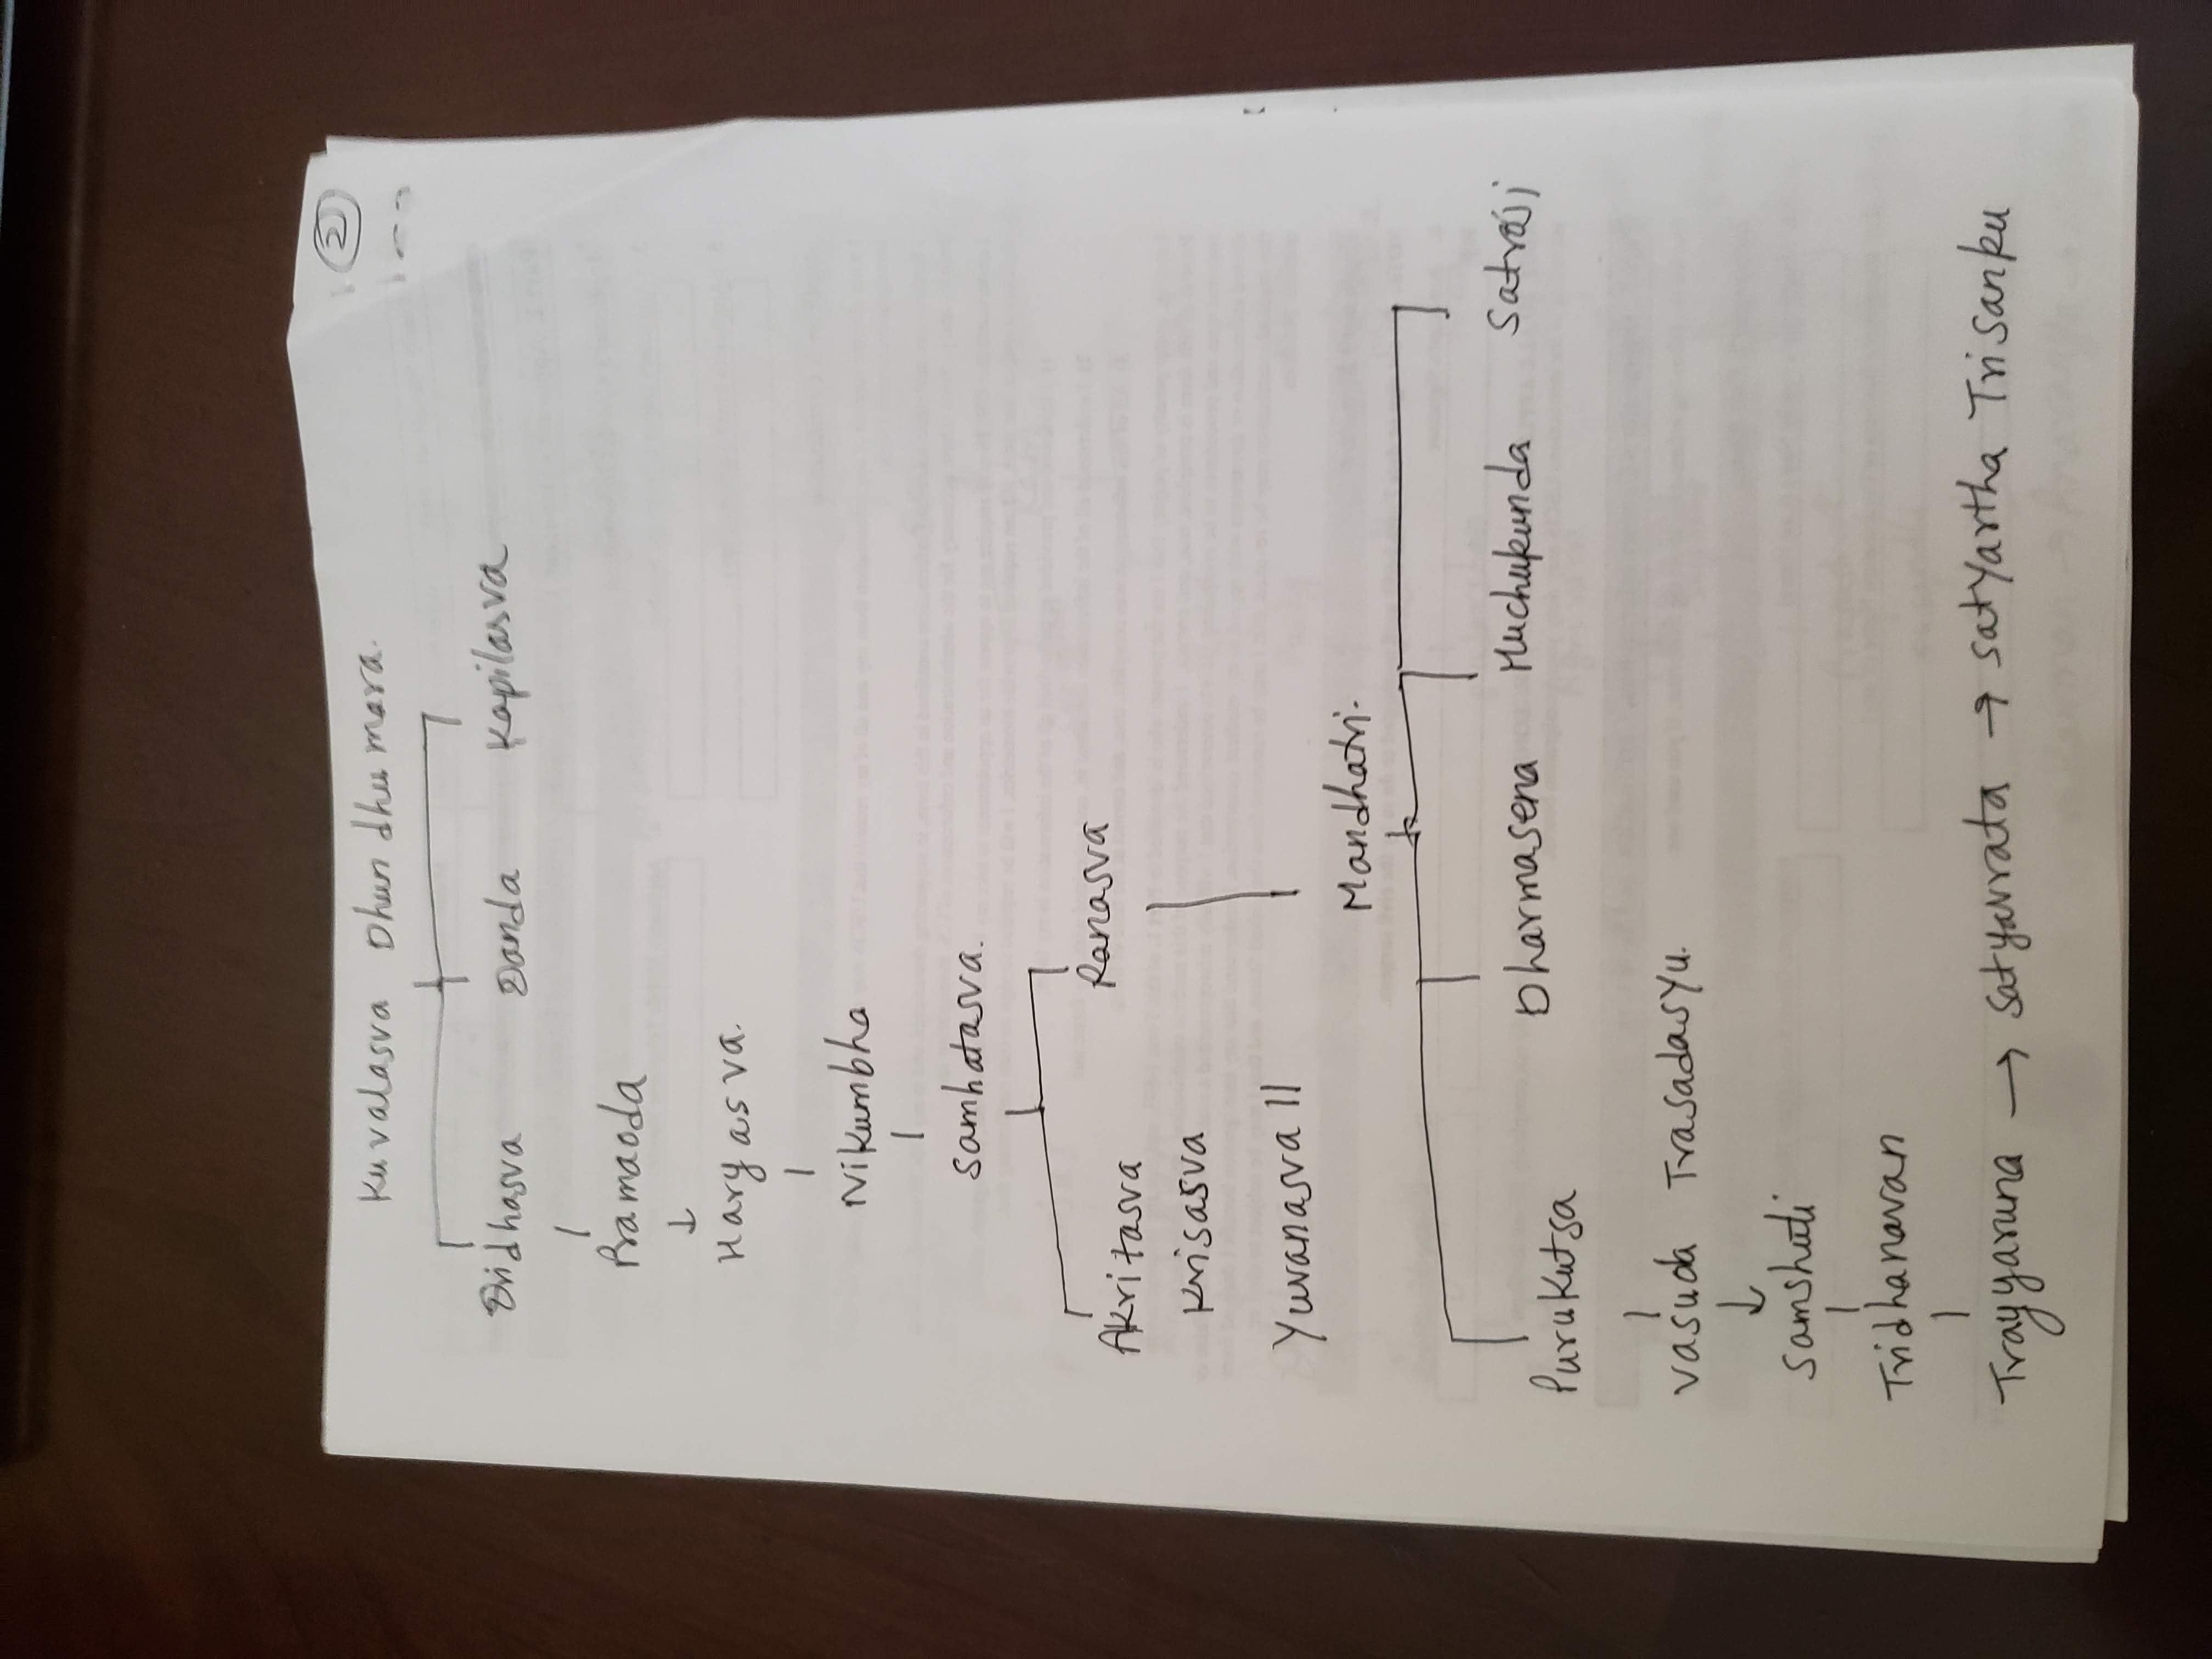 2
Kuvalasva Dhundhumara.
Dridhasva Danda Kapilasva
Pramaoda
Haryasva.
Nikumbha
Samhatasva.
Akritasva Ranasva
Krisasva
Yuvanasva II
Mandhatri.
Purukutsa Dharmasena Muchukunda Satraji
Vasuda Trasadasyu.
Samshuti
Tridhanavan
Trayyaruna → Satyavrata → Satyartha Trisanku